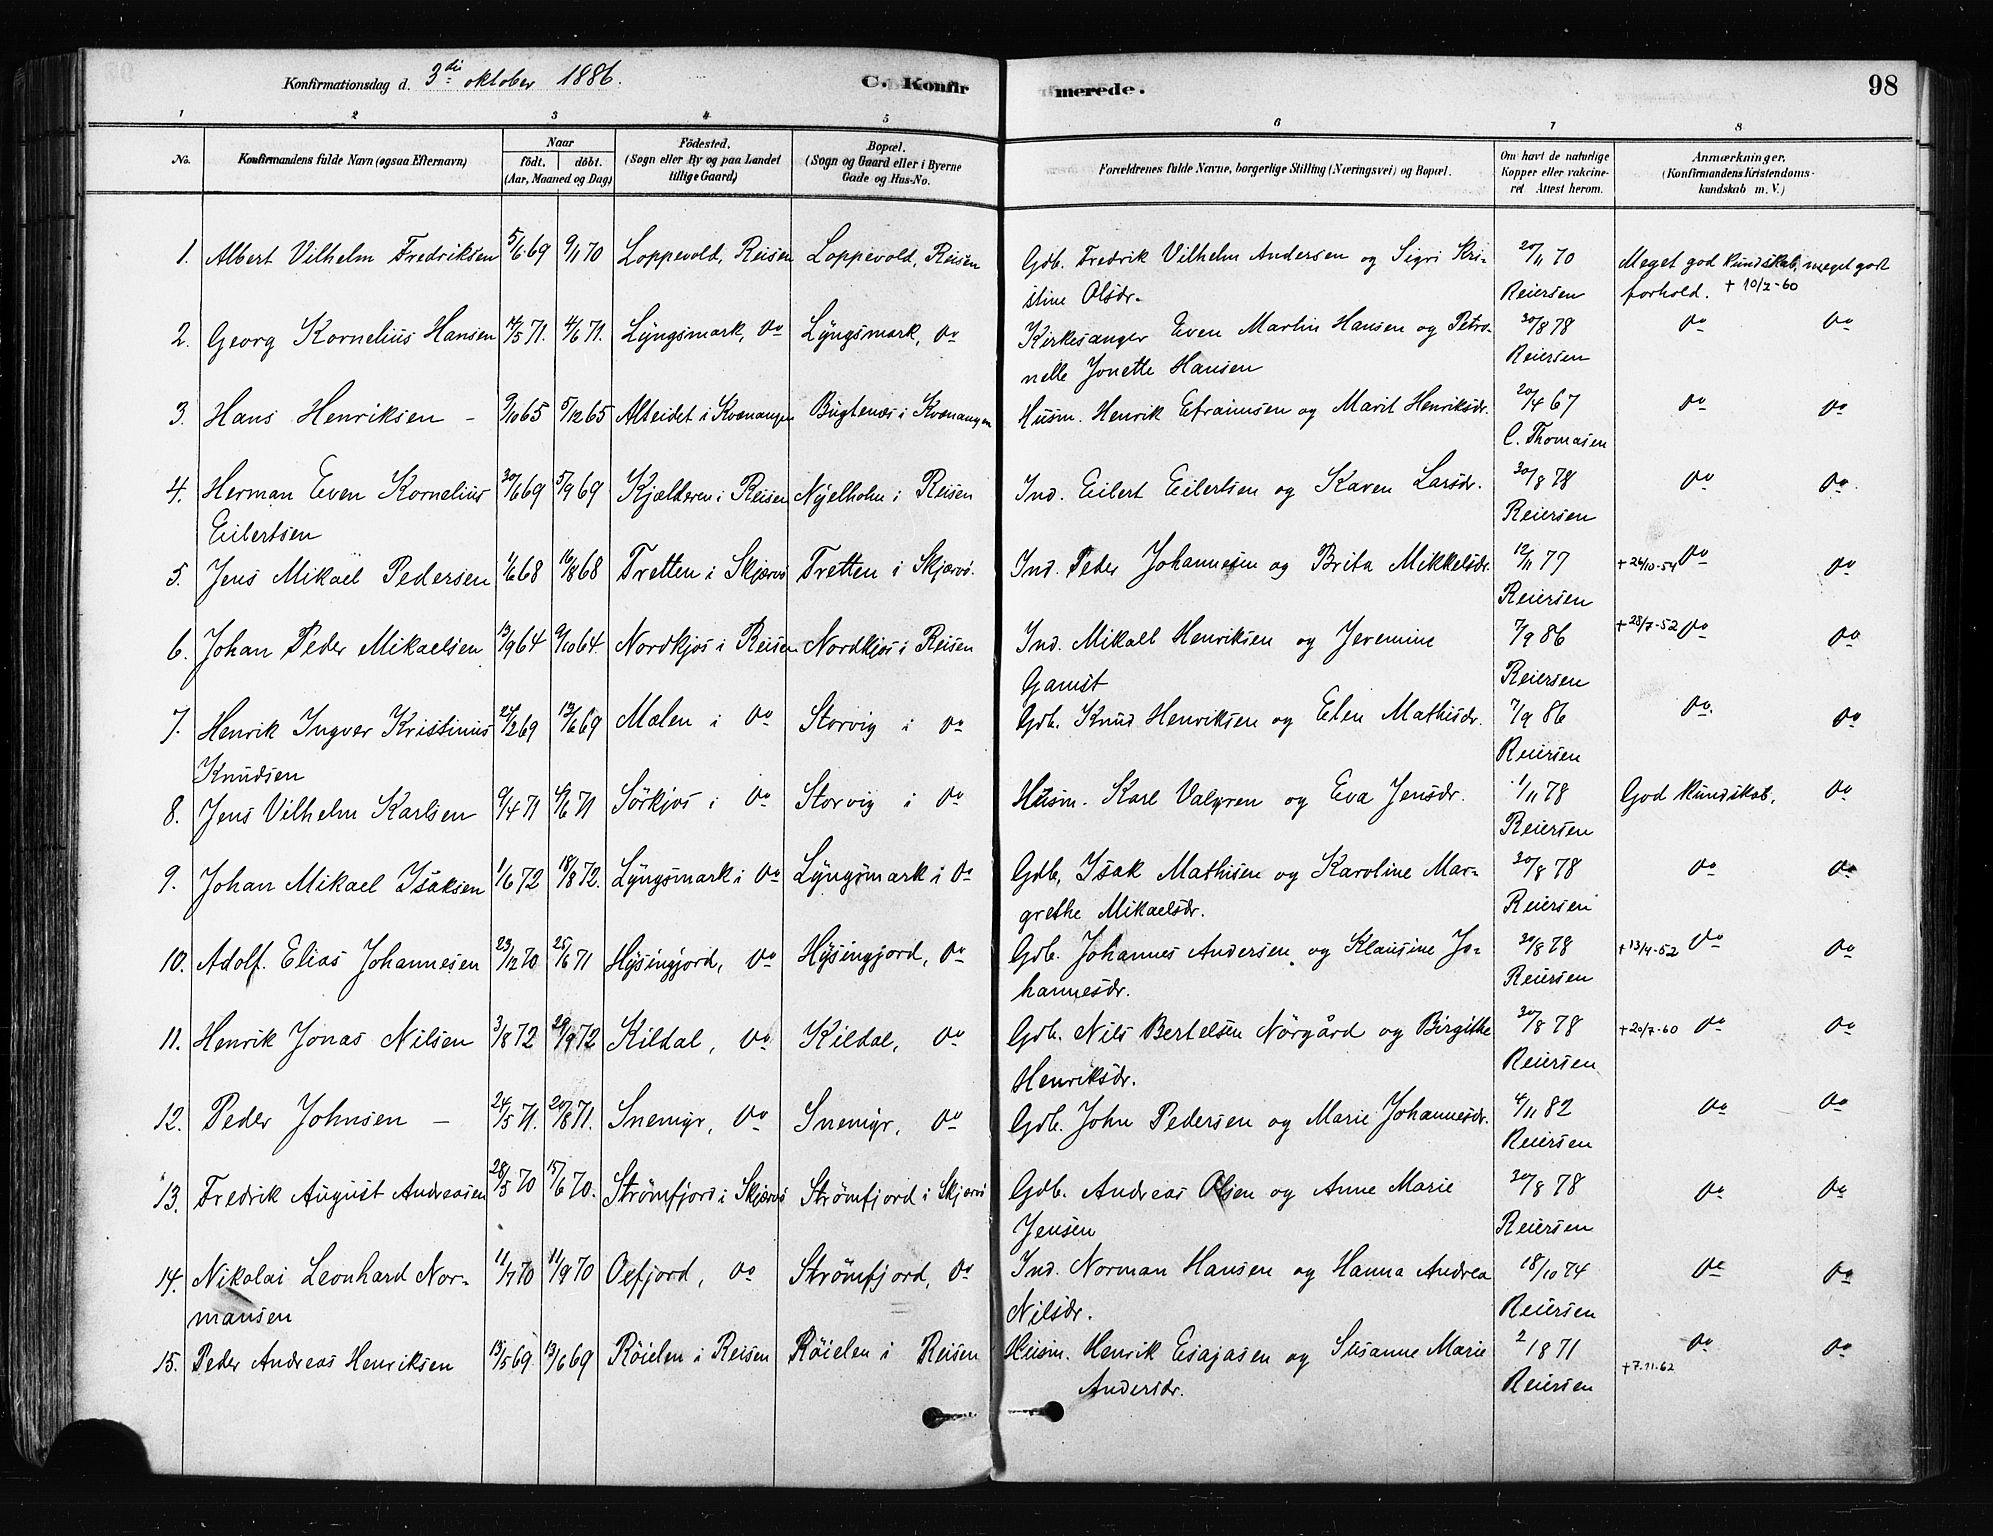 Konfirmationsdag d. 3die oktober 1886. C. Konfirmerede. 98
1 2 3 4 5 6 7 8
No. Konfirmandens fulde Navn (ogsaa Efternavn) Naar födt. döbt. (Aar, Maaned og Dag) Födested. (Sogn eller By og paa Landet tillige Gaard) Bopæl. (Sogn og Gaard eller i Byerne Gade og Hus-No. Forældrenes fulde Navne, borgerlige Stilling (Næringsvei) og Bopæl. Om havt de naturlige Kopper eller vakcineret Attest herom. Anmærkninger, (Konfirmandens Kristendomskundskab m. V.)
1. Albert Vilhelm Fredriksen 5/6 69 9/1 70 Loppevold, Reisen Loppevold, Reisen Gdb. Fredrik Vilhelm Andersen og Sigri Kri- 20/11 70 Meget god kundskab, meget godt
stine Olsdr. Reiersen forhold. + 10/2-60
2. Georg Kornelius Hansen 4/6 71. Lyngsmark, do Lyngsmark, do Kirkesanger Even Martin Hansen og Petro- 30/8 78 do do
nelle Jonette Hansen Reiersen
3. Hans Henriksen - 9/10 65 5/12 65 Alteidet i Kvænangen Bugtenæs i Kvænangen Husm. Henrik Efraimsen og Marit Henriksdr. 20/4 67 do do
C. Thomasen
4. Herman Even Kornelius 30/6 69 5/9 69 Kjælderen i Reisen Nyelholm i Reisen Ind. Eilert Eilertsen og Karen Larsdr. 30/8 78 do do
Eilertsen Reiersen
5. Jens Mikael Pedersen 1/6 68 16/8 68 Tretten i Skjærvö Tretten i Skjærvö. Ind. Peder Johannesen og Brita Mikkelsdr. 12/11 77 + 26/10-54 do do
Reiersen
6. Johan Peder Mikaelsen 13/9 64 9/10 64. Nordkjos i Reisen Nordkjos i Reisen Ind. Mikael Henriksen og Jeremine 7/9 86 + 28/7-52 do do
Gamst Reiersen
7. Henrik Ingver Kristinius 13/6 69 Mælen i do Storvig i do Gdb. Knud Henriksen og Elen Mathisdr. 7/9 86 do do
Knudsen Reiersen
8. Jens Vilhelm Karlsen 9/4 71 4/6 71 Sörkjos i do Storvig i do Husm. Karl Valgren og Eva Jensdr. 1/11 78 God kundskab, do
Reiersen
9. Johan Mikael Isaksen 1/6 72 18/8 72. Lyngsmark i do Lyngsmark i do Gdb. Isak Mathisen og Karoline Mar- 30/8 78 do do
grethe Mikaelsdr. Reiersen
10. Adolf. Elias Johannesen 23/12 70 25/6 71 Hysingjord, do Hysingjord, do Gdb. Johannes Andersen og Klausine Jo- 30/8 78 + 13/4-52 do do
hannesdr. Reiersen
11. Henrik Jonas Nilsen 3/8 72 29/9 72 Kildal, do Kildal, do Gdb. Nils Bertelsen Nörgård og Birgithe 30/8 78 + 20/7-60 do do
Henriksdr. Reiersen
12. Peder Johnsen - 24/5 71. 20/8 71. Snemyr, do Snemyr, do Gdb. John Pedersen og Marie Johannesdr. 4/11 82 do do
Reiersen
13. Fredrik August Andreasen 28/5 70 15/6 70. Strömfjord i Skjærvö Strömfjord i Skjærvö Gdb. Andreas Olsen og Anne Marie 30/8 78 do do
Jensen Reiersen
14. Nikolai Leonhard Nor- 11/7 70 11/9 70 Oxfjord, do Strömfjord, do Ind. Norman Hansen og Hanna Andrea 18/10 74 do do
mansen Nilsdr. Reiersen
15. Peder Andreas Henriksen 13/5 69. 13/6 69 Röielen i Reisen Röielen i Reisen Husm. Henrik Esajasen og Susanne Marie 2 1871 + 7.11-62 do do
Andersdr. Reiersen